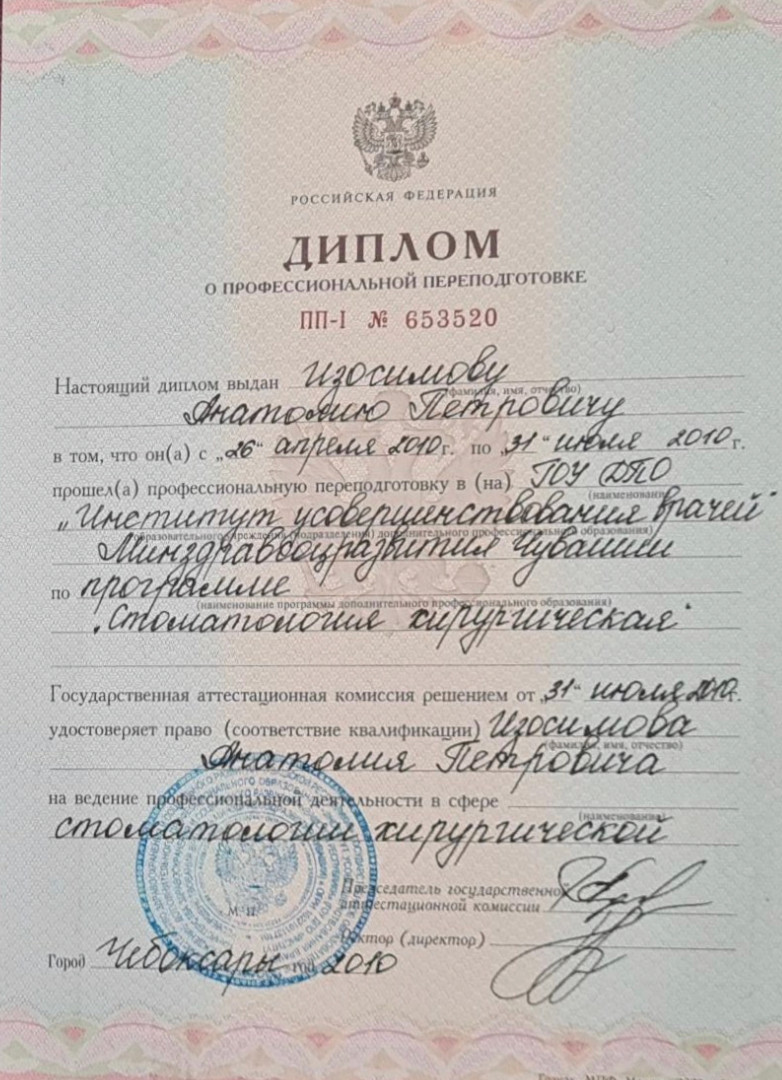 РОССИЙСКАЯ ФЕДЕРАЦИЯ
ДИПЛОМ
О ПРОФЕССИОНАЛЬНОЙ ПЕРЕПОДГОТОВКЕ
ПП-I № 653520
Настоящий диплом выдан Изосимову
(фамилия, имя, отчество)
Анатолию Петровичу
в том, что он(а) с „26“ апреля 2010г. по „31“ июля 2010г.
прошел(а) профессиональную переподготовку в (на) ГОУ ДПО
(наименование
„Институт усовершенствования врачей"
образовательного учреждения (подразделения) дополнительного профессионального образования)
Минздравсоцразвития Чувашии
по программе
(наименование программы дополнительного профессионального образования)
„Стоматология хирургическая"
Государственная аттестационная комиссия решением от „31“ июля 2010г.
удостоверяет право (соответствие квалификации) Изосимова
(фамилия, имя, отчество)
Анатолия Петровича
на ведение профессиональной деятельности в сфере
(наименование)
стоматологии хирургической
Председатель государственной
аттестационной комиссии
М.П.
Ректор (директор)
Город Чебоксары год 2010